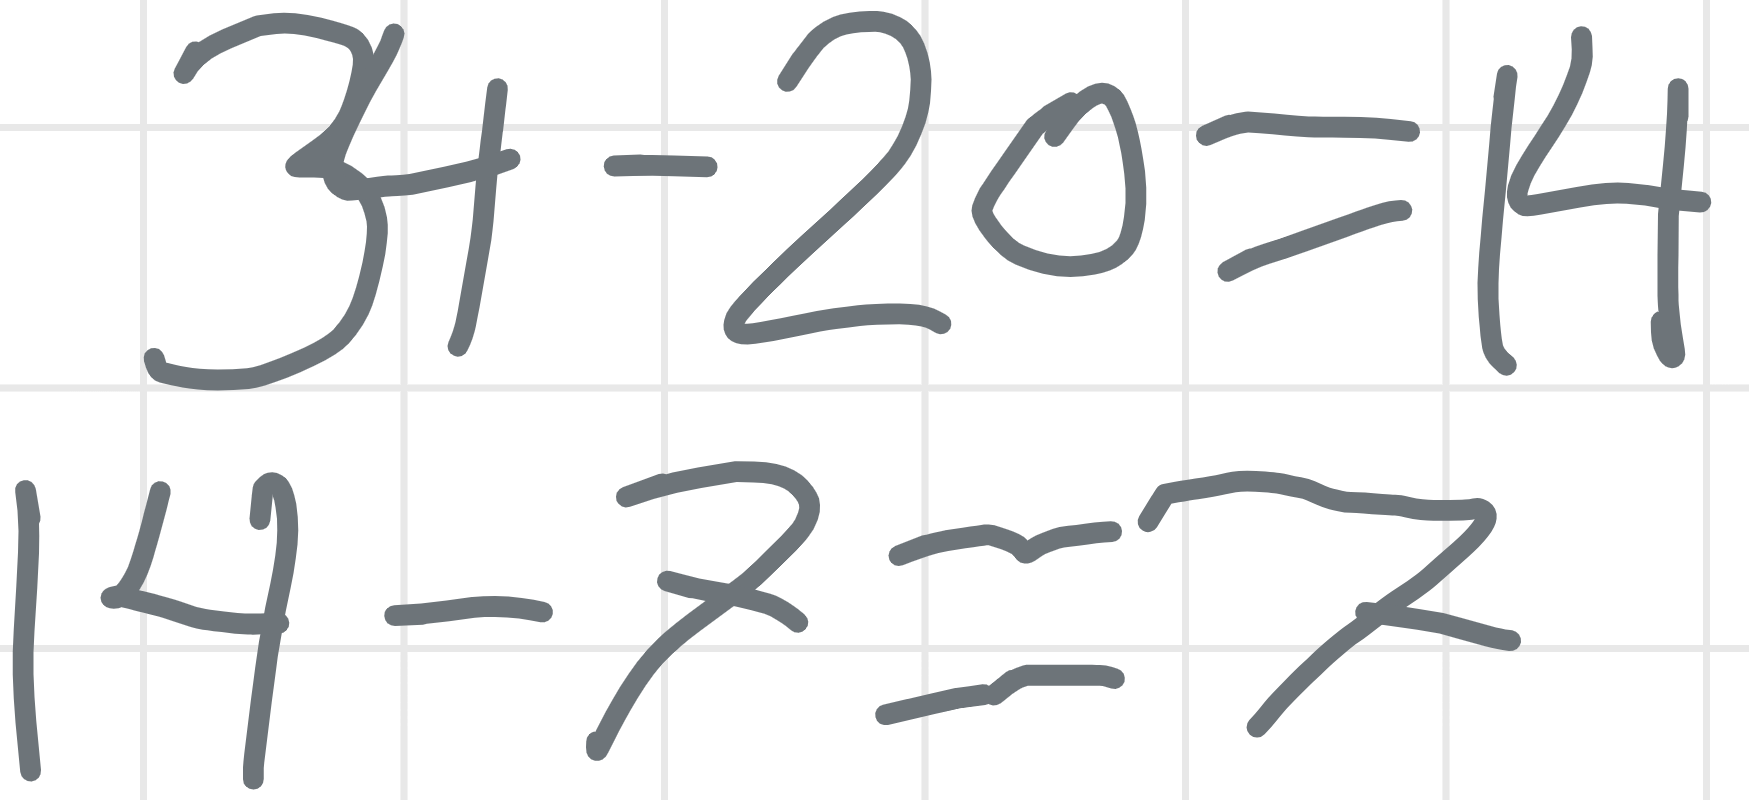 34-20=14
14-7=7